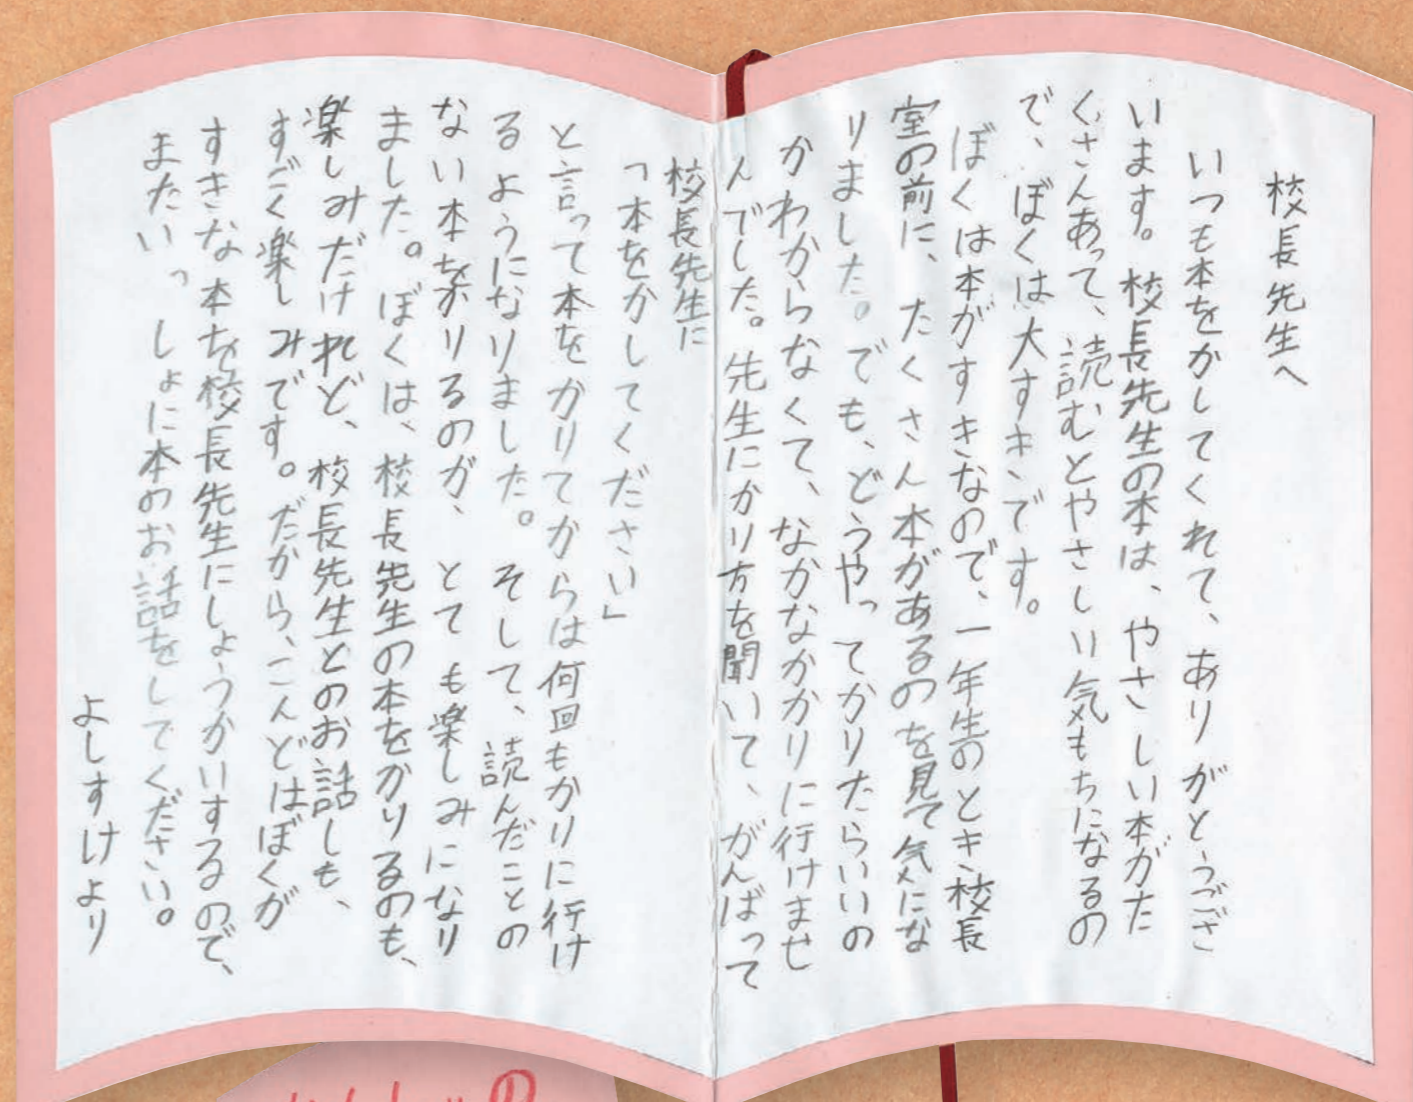 校長先生へ
いつも本をかしてくれて、ありがとうござ
います。校長先生の本は、やさしい本がた
くさんあって、読むとやさしい気もちになるの
で、ぼくは大すきです。
ぼくは本がすきなので、一年生のとき、校長
室の前に、たくさん本があるのを見て気にな
りました。でも、どうやってかりたらいいの
かわからなくて、なかなかかりに行けませ
んでした。先生にかり方を聞いて、がんばって
校長先生に
「本をかしてください」
と言って本をかりてからは何回もかりに行け
るようになりました。そして、読んだことの
ない本をかりるのが、とても楽しみになり
ました。ぼくは、校長先生の本をかりるのも、
楽しみだけれど、校長先生とのお話しも、
すごく楽しみです。だから、こんどはぼくが
すきな本を校長先生にしょうかいするので、
またいっしょに本のお話をしてください。
よしすけより